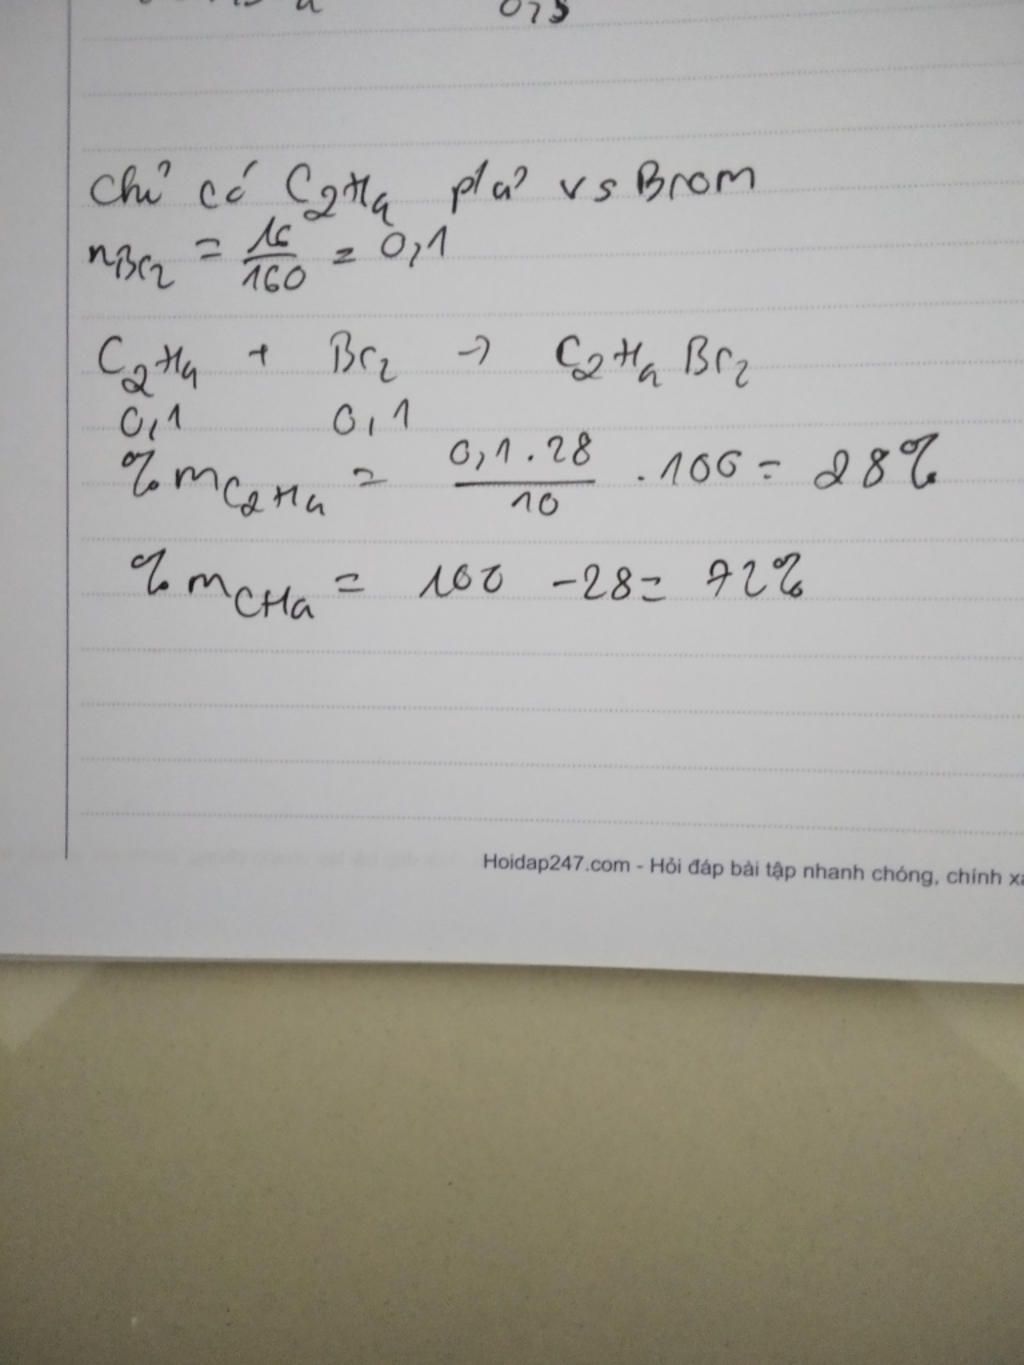 0,5
Chỉ có C2H4 pứ vs Brom
nBr2 = 16/160 = 0,1
C2H4 + Br2 → C2H4Br2
0,1 0,1
%mC2H4 = 0,1.28/10 . 100 = 28%
%mCH4 = 100 - 28 = 72%
Hoidap247.com - Hỏi đáp bài tập nhanh chóng, chính xá